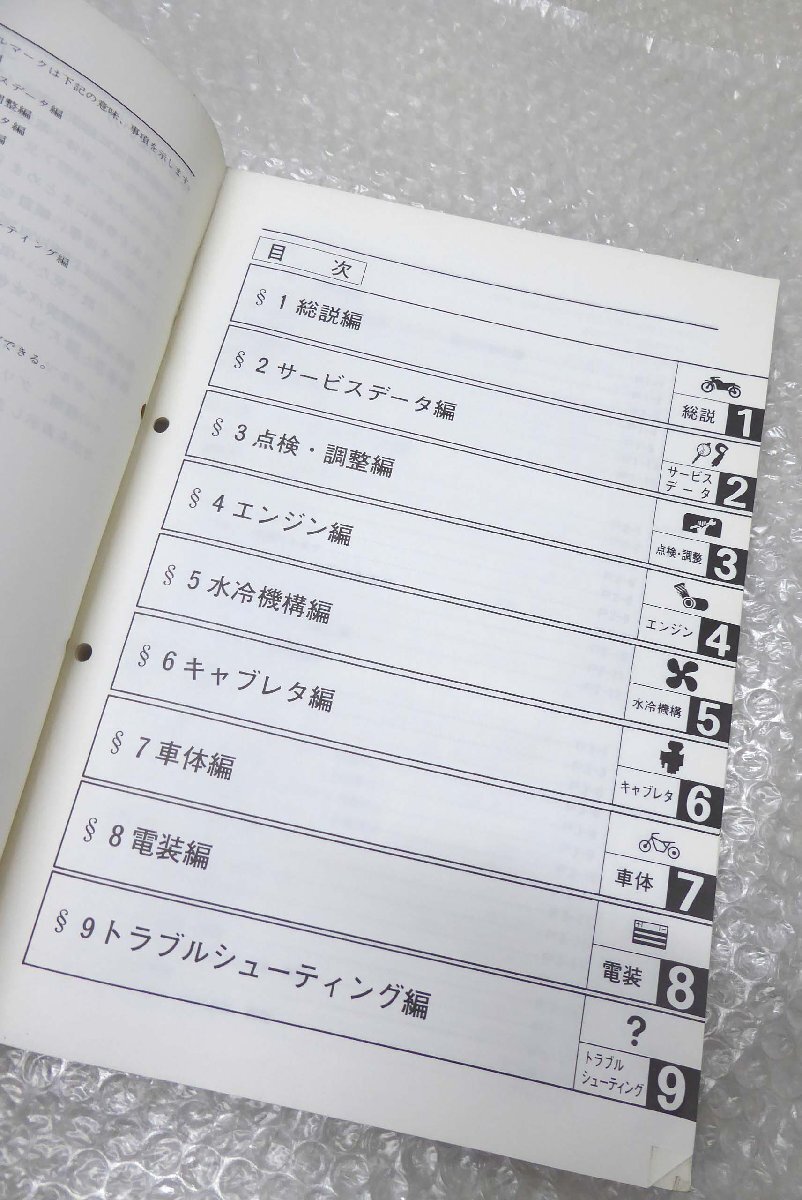 ルマークは下記の意味、事項を示します。
スデータ編
調整編
タ編
編
ーティング編
できる。
目 次
§ 1 総説編
総説 1
§ 2 サービスデータ編
サービス
データ 2
§ 3 点検・調整編
点検・調整 3
§ 4 エンジン編
エンジン 4
§ 5 水冷機構編
水冷機構 5
§ 6 キャブレタ編
キャブレタ 6
§ 7 車体編
車体 7
§ 8 電装編
電装 8
§ 9 トラブルシューティング編
?
トラブル
シューティング 9